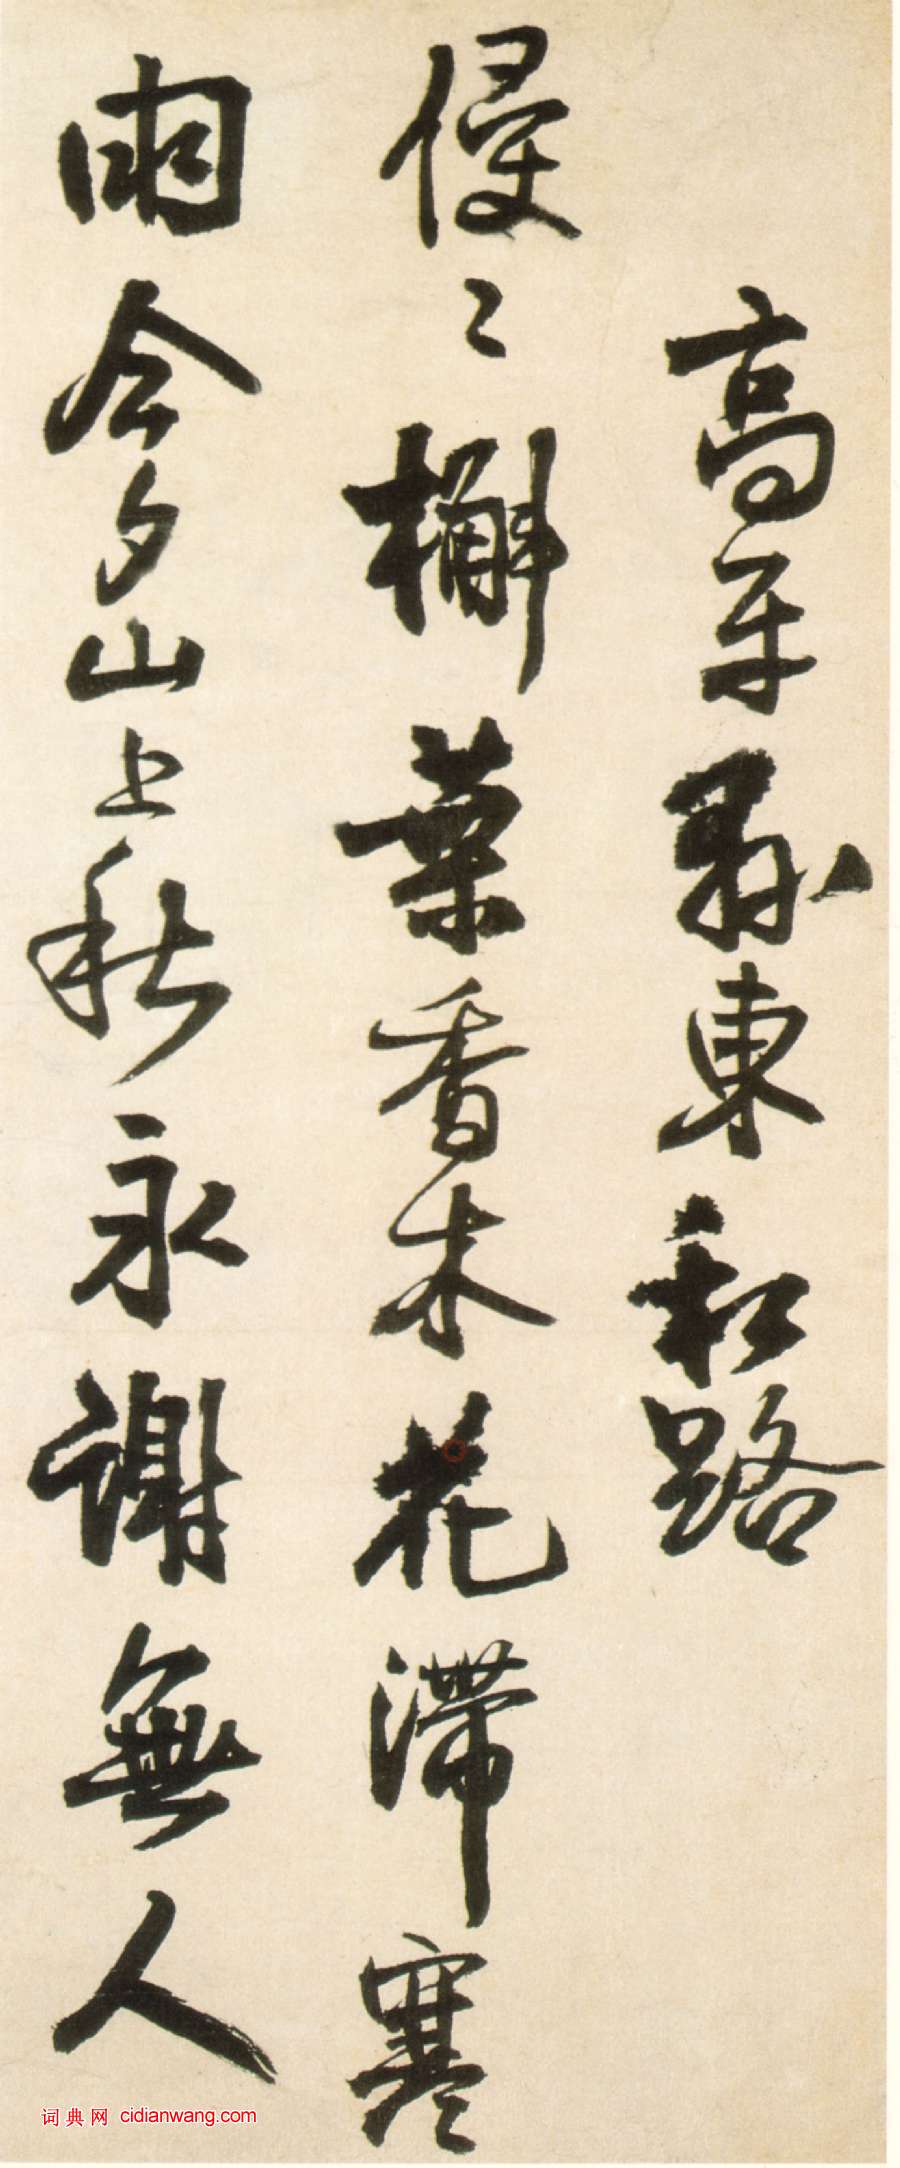 高平縣東私路
侵〻槲葉香木花滯寒
雨今夕山上秋永謝無人
词典网 cidianwang.com